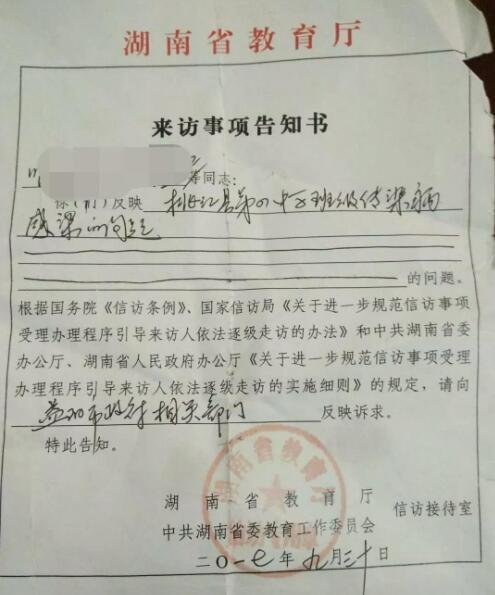 湖南省教育厅
来访事项告知书
等同志:
你(们)反映 桃江县第四中学班级传染病
感染的问题
的问题。
根据国务院《信访条例》、国家信访局《关于进一步规范信访事项
受理办理程序引导来访人依法逐级走访的办法》和中共湖南省委
办公厅、湖南省人民政府办公厅《关于进一步规范信访事项受理
办理程序引导来访人依法逐级走访的实施细则》的规定，请向
益阳市政府相关部门 反映诉求。
特此告知。
湖南省教育厅
中共湖南省委教育工作委员会 信访接待室
二〇一七年九月三十日
湖南省教育厅